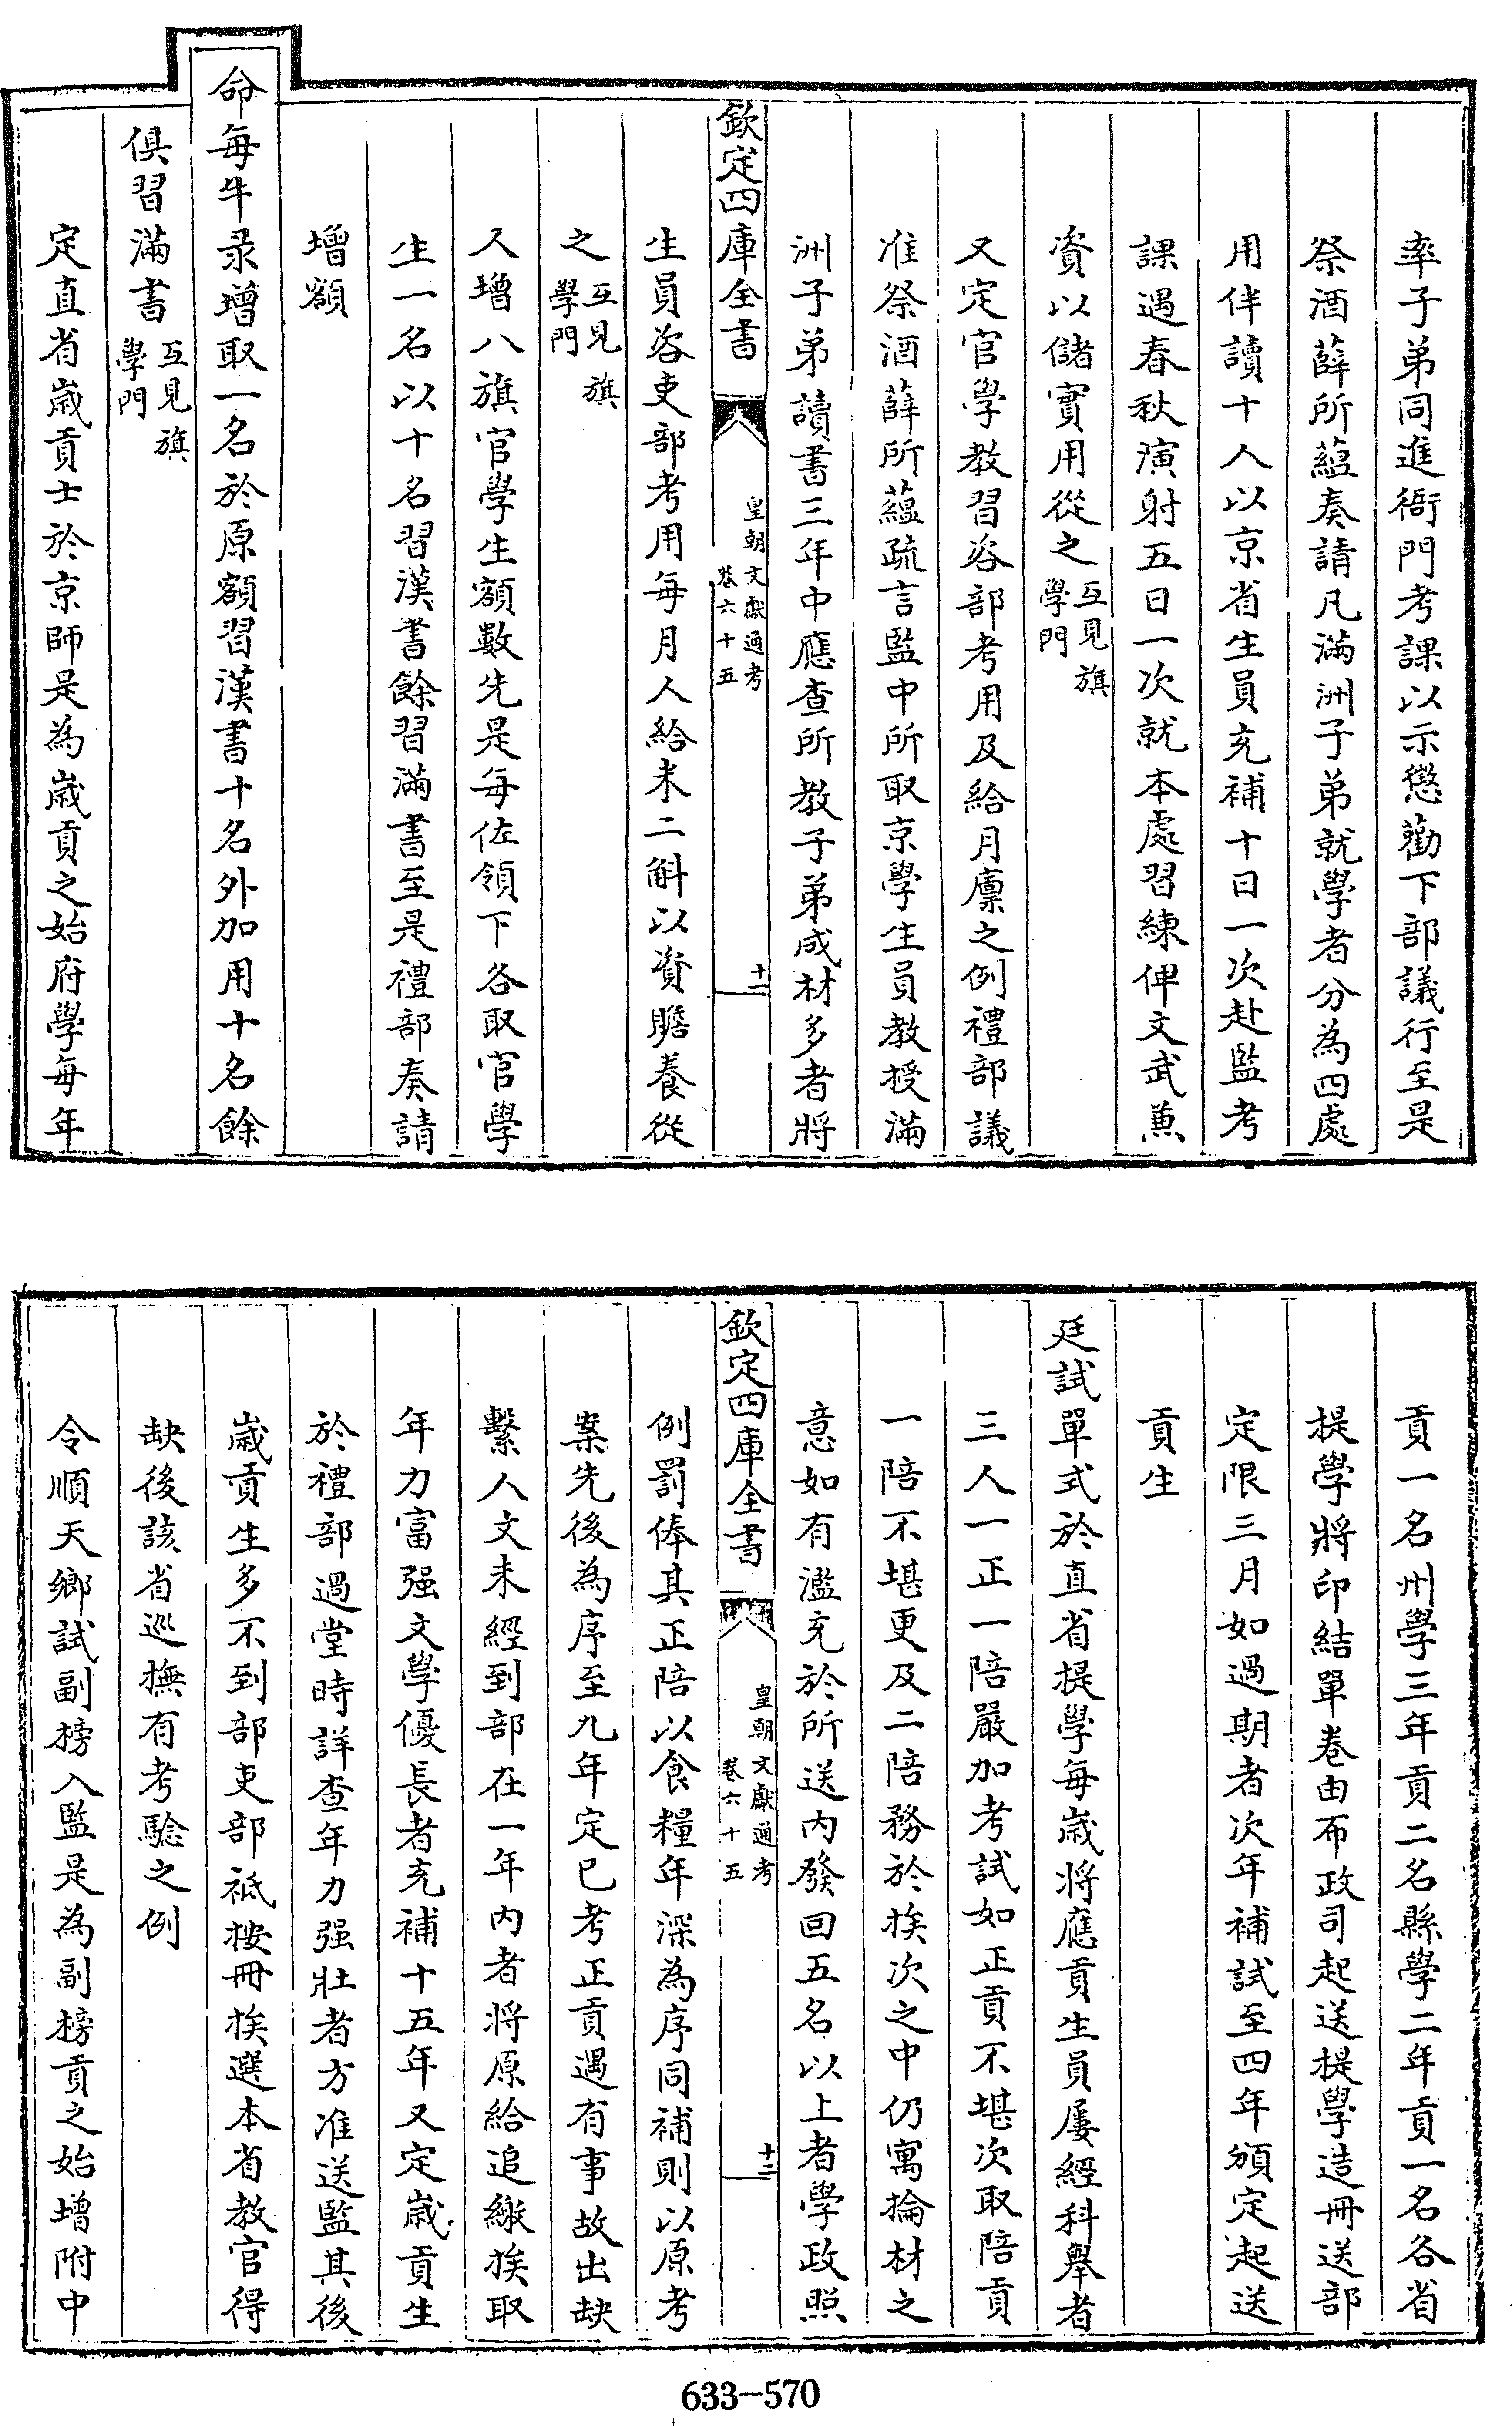 率子弟同進衙門考課以示懲勸下部議行至是
祭酒薛所蘊奏請凡滿洲子弟就學者分為四處
用伴讀十人以京省生員充補十日一次赴監考
課遇春秋演射五日一次就本處習練俾文武兼
資以儲實用從之互見旗學門
又定官學教習咨部考用及給月廪之例禮部議
准祭酒薛所蘊疏言監中所取京學生員教授滿
洲子弟讀書三年中應查所教子弟成材多者將
欽定四庫全書 皇朝文獻通考 卷六十五 十一
生員咨吏部考用每月人給米二斛以資贍養從
之互見旗學門
又增八旗官學生額數先是每佐領下各取官學
生一名以十名習漢書餘習滿書至是禮部奏請
增額
命每牛录增取一名於原額習漢書十名外加用十名餘
俱習滿書互見旗學門
定直省歲貢士於京師是為歲貢之始府學每年
貢一名州學三年貢二名縣學二年貢一名各省
提學將印結單卷由布政司起送提學造冊送部
定限三月如過期者次年補試至四年頒定起送
貢生
廷試單式於直省提學每歲將應貢生員屢經科舉者
三人一正一陪嚴加考試如正貢不堪次取陪貢
一陪不堪更及二陪務於挨次之中仍寓掄材之
意如有濫充於所送內發回五名以上者學政照
欽定四庫全書 皇朝文獻通考 卷六十五 十二
例罰俸其正陪以食糧年深為序同補則以原考
案先後為序至九年定已考正貢遇有事故出缺
繫人文未經到部在一年內者將原給追繳挨取
年力富强文學優長者充補十五年又定歲貢生
於禮部過堂時詳查年力强壯者方准送監其後
歲貢生多不到部吏部祗按冊挨選本省教官得
缺後該省巡撫有考驗之例
令順天鄉試副榜入監是為副榜貢之始增附中
633-570